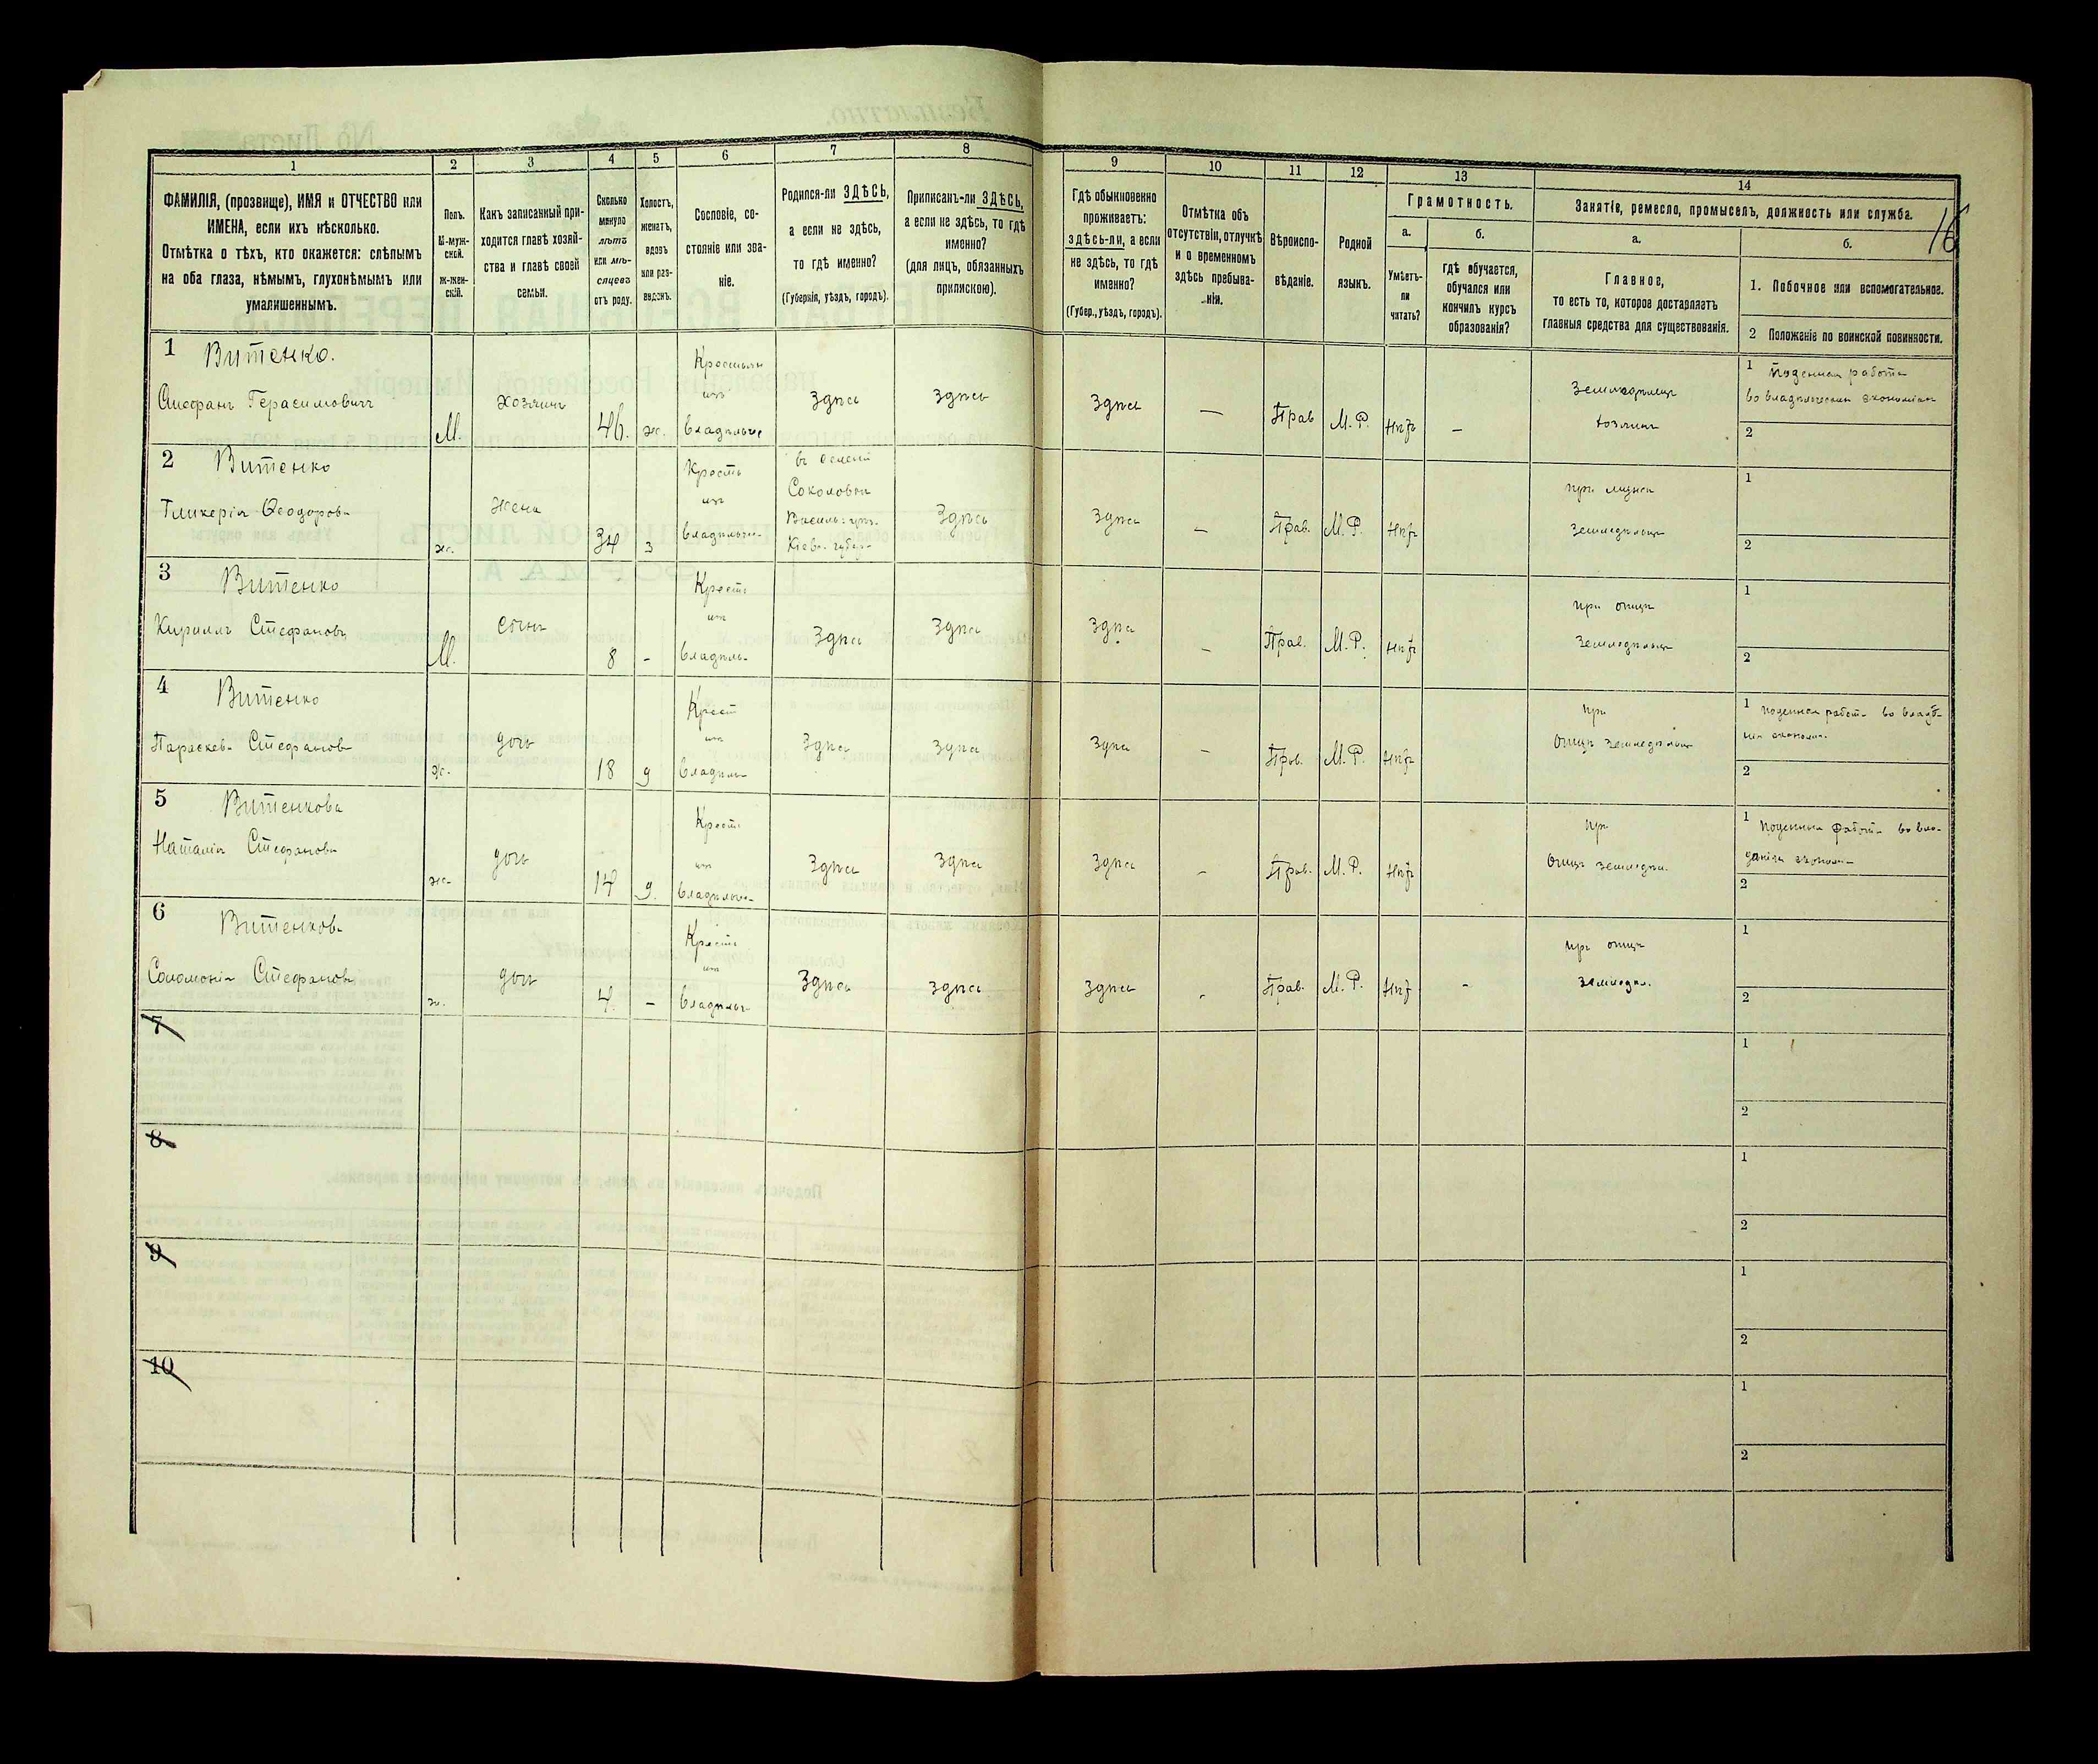 16
1 2 3 4 5 6 7 8 9 10 11 12 13 14
ФАМИЛІЯ, (прозвище), ИМЯ и ОТЧЕСТВО или
ИМЕНА, если ихъ нѣсколько.
Отмѣтка о тѣхъ, кто окажется: слѣпымъ
на оба глаза, нѣмымъ, глухонѣмымъ или
умалишеннымъ.
Полъ.
М-муж-
ской.
Ж-жен-
скій.
Какъ записанный при-
ходится главѣ хозяй-
ства и главѣ своей
семьи.
Сколько
минуло
лѣтъ
или мѣ-
сяцевъ
отъ роду.
Холостъ,
женатъ,
вдовъ
или раз-
веденъ.
Сословіе, со-
стояніе или зва-
ніе.
Родился-ли ЗДѢСЬ,
а если не здѣсь,
то гдѣ именно?
(Губернія, уѣздъ, городъ).
Приписанъ-ли ЗДѢСЬ,
а если не здѣсь, то гдѣ
именно?
(для лицъ, обязанныхъ
припискою).
Гдѣ обыкновенно
проживаетъ:
здѣсь-ли, а если
не здѣсь, то гдѣ
именно?
(Губер., уѣздъ, городъ).
Отмѣтка объ
отсутствіи, отлучкѣ
и о временномъ
здѣсь пребыва-
ніи.
Вѣроиспо-
вѣданіе.
Родной
языкъ.
Грамотность.
а.
Умѣетъ-
ли
читать?
б.
гдѣ обучается,
обучался или
кончилъ курсъ
образованія?
Занятіе, ремесло, промыселъ, должность или служба.
а.
Главное,
то есть то, которое доставляетъ
главныя средства для существованія.
б.
1. Побочное или вспомогательное.
2 Положеніе по воинской повинности.
1 Витенко.
Герасимович
М.
хозяинъ
46.
ж.
Крестьян
изъ
владѣльче
Здѣсь
Здѣсь
Здѣсь
—
Прав
М. Р.
нѣтъ
—
Земледѣлец
хозяинъ
1 Поденная работа
во владѣльческих экономіях
2
2 Витенко
Гликерія Ѳеодоров
ж.
Жена
34
з
Кресть
изъ
владѣльче
въ селеніи
Соколовка
Васильк. уѣз.
Кіев. губер.
Здѣсь
Здѣсь
—
Прав.
М. Р.
нѣтъ
при мужѣ
земледѣльцѣ
1
2
3 Витенко
Кириллъ Стефановъ
М.
Сынъ
8
-
Кресть
изъ
владѣль
Здѣсь
Здѣсь
Здѣсь
—
Прав.
М. Р.
нѣтъ
при отцѣ
земледѣльцѣ
1
2
4 Витенко
Параскев Стефанов
ж.
дочь
18
д
Крест
изъ
владѣль
Здѣсь
Здѣсь
Здѣсь
—
Прав.
М. Р.
нѣтъ
при
отцѣ земледѣльц
1 поденная работ во владѣ
2
5 Витенкова
Наталія Стефанова
ж.
дочь
14
д.
Кресть
изъ
владѣльче
Здѣсь
Здѣсь
Здѣсь
—
Прав.
М. Р.
нѣтъ
при
отцѣ земледѣл.
1 поденная работ во вла-
2
6 Витенков
Соломонія Стефанов
ж.
дочь
4.
—
Кресть
изъ
владѣльч
Здѣсь
Здѣсь
Здѣсь
-
Прав.
М. Р.
нѣтъ
-
при отцѣ
земледѣл.
1
2
7
1
2
8
1
2
9
1
2
10
1
2